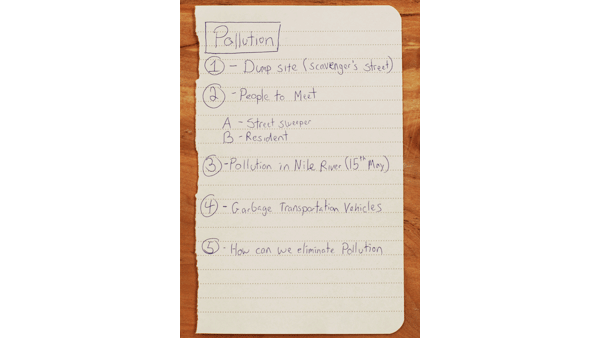 Pollution
1 - Dump site (scavenger's street)
2 - People to Meet
A - Street sweeper
B - Resident
3 - Pollution in Nile River (15th May)
4 - Garbage Transportation Vehicles
5 - How can we eliminate Pollution